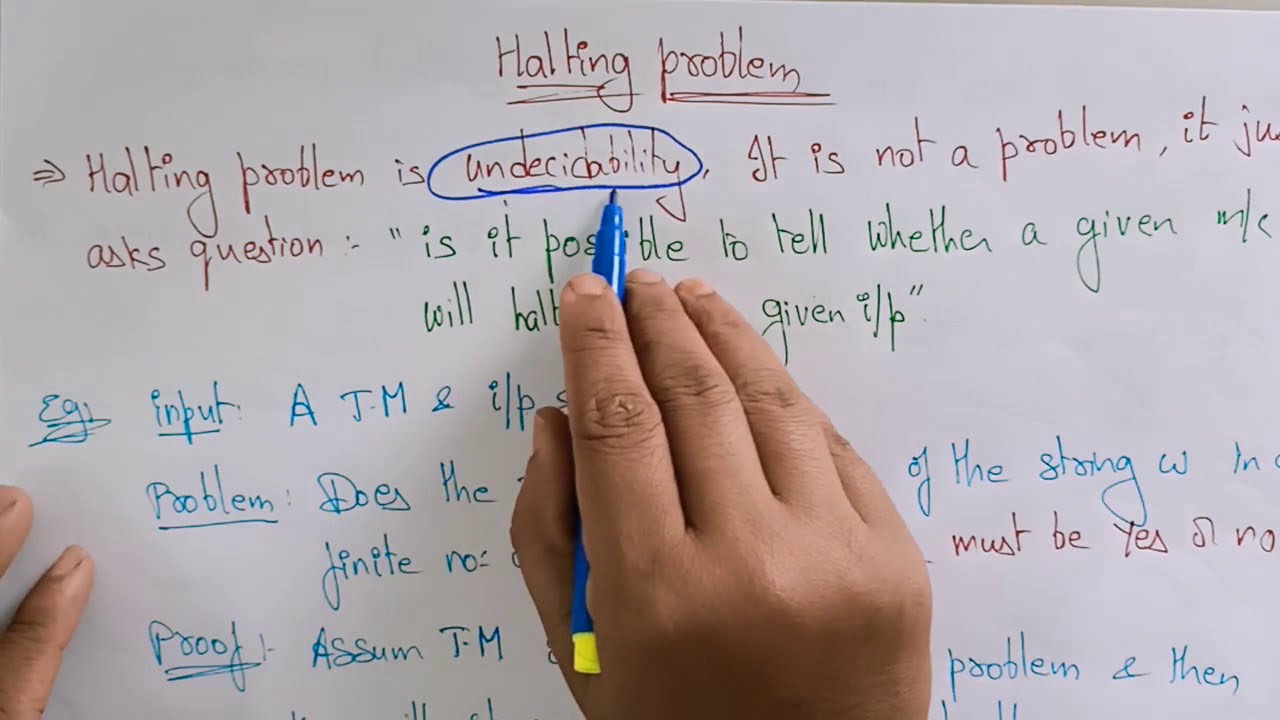 Halting problem
⇒ Halting problem is undecidability. It is not a problem, it
asks question :- "is it possible to tell whether a given m/c
will halt given i/p"
Eg: input: A T.M & i/p
Problem: Does the of the string w in
finite no: must be Yes or no
Proof:- Assum T.M problem & then